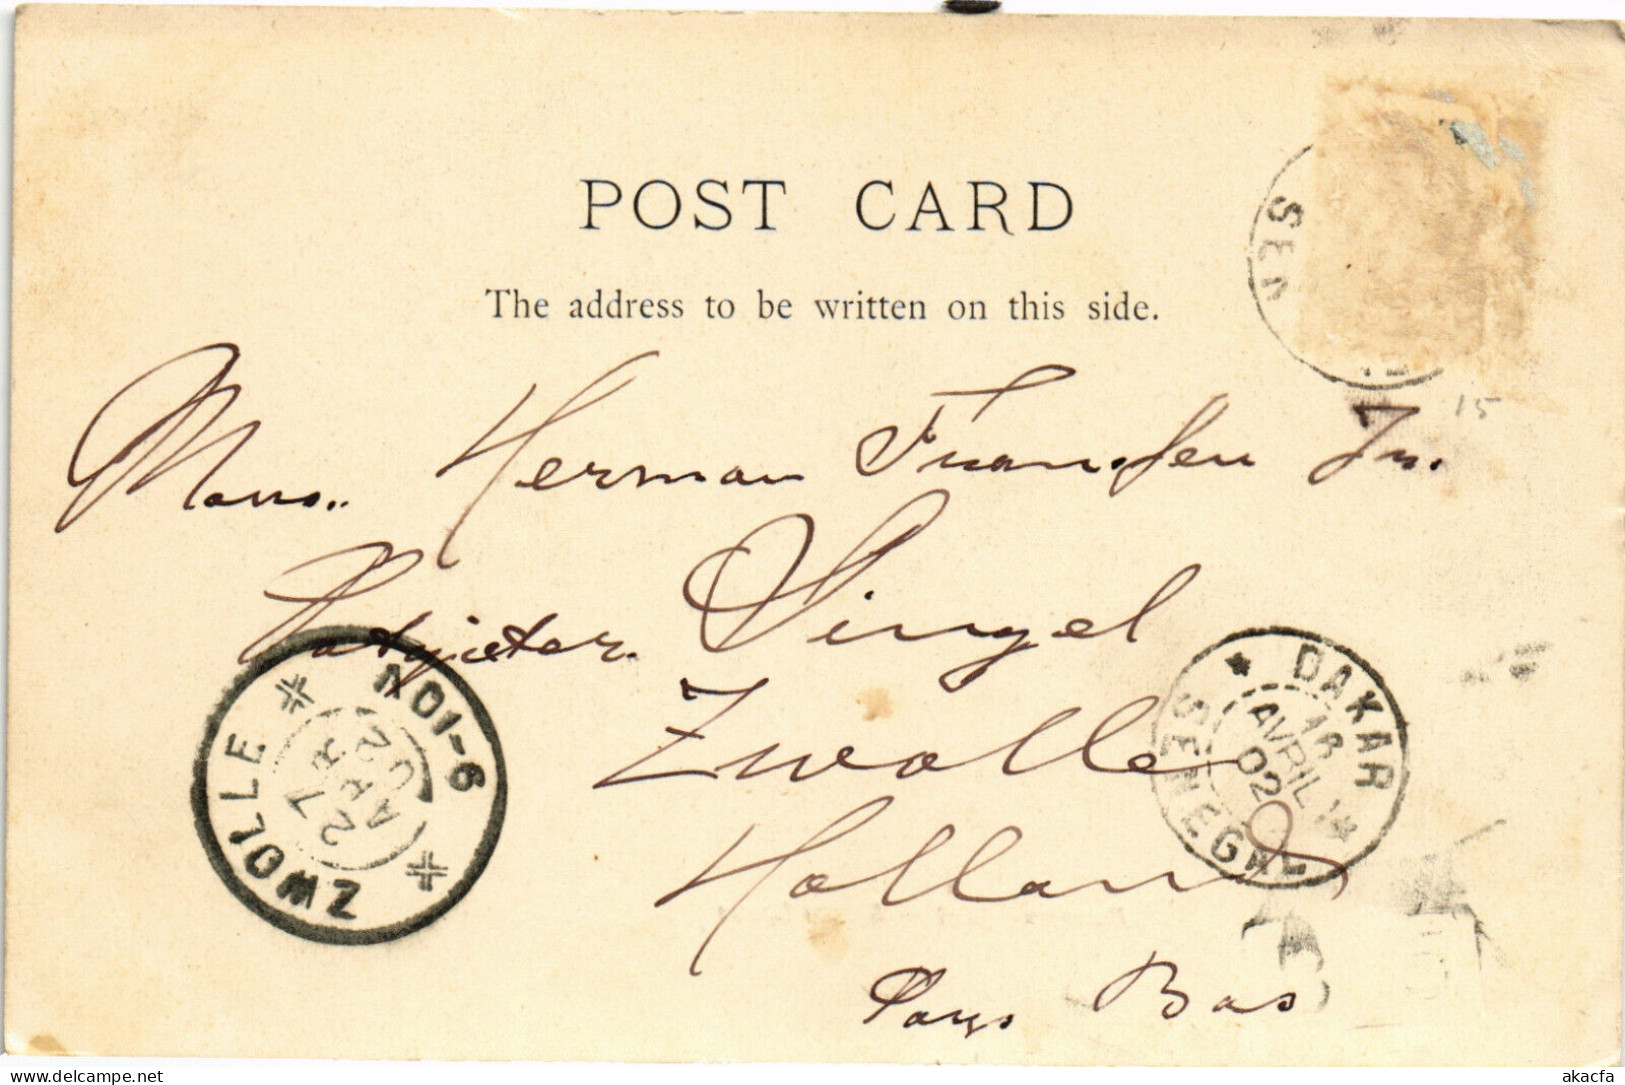 POST CARD
The address to be written on this side.
SEN
15
Mons. Herman Fransen Jr.
Potgieter Singel
Zwolle
Holland
Pays Bas
ZWOLLE
NO 1-6
27 APR 02
DAKAR
16 AVRIL 02
SENEGAL
akacfa